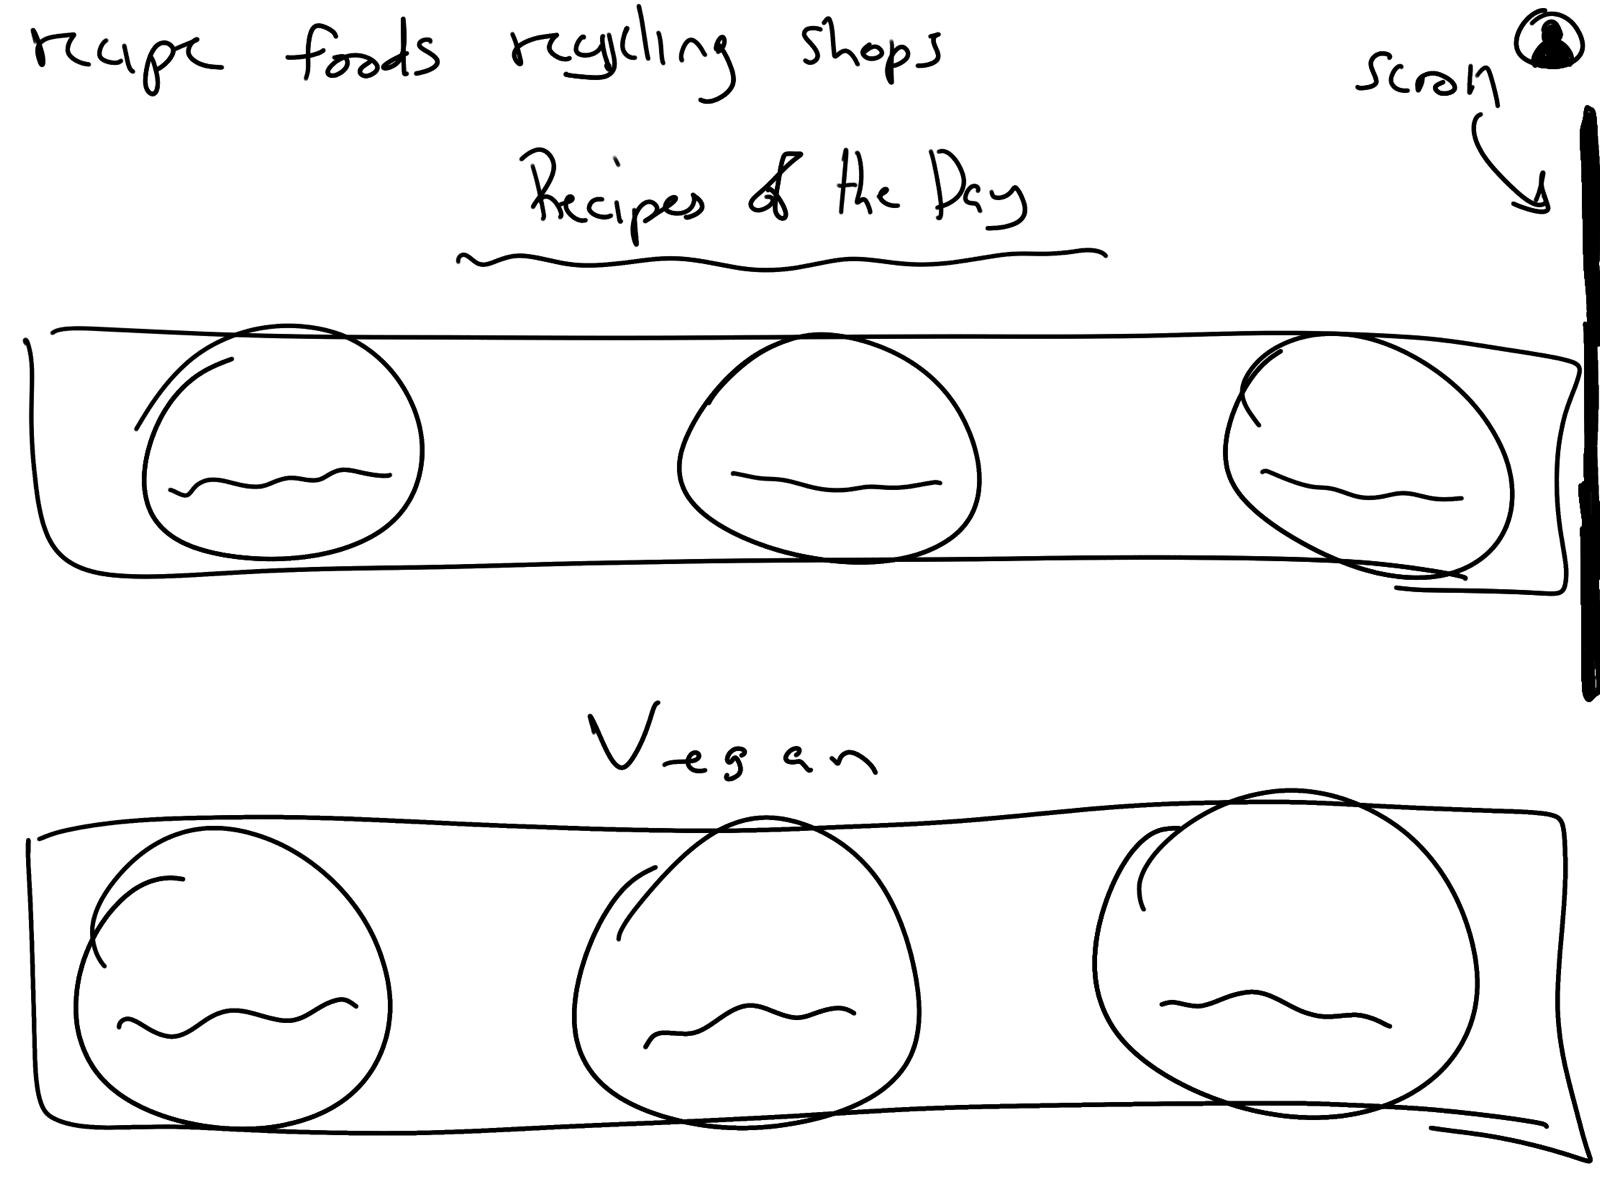 recipe foods recycling shops
scroll
Recipes of the Day
Vegan